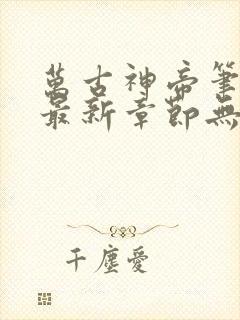 萬古神帝筆
最新章節無
千塵愛